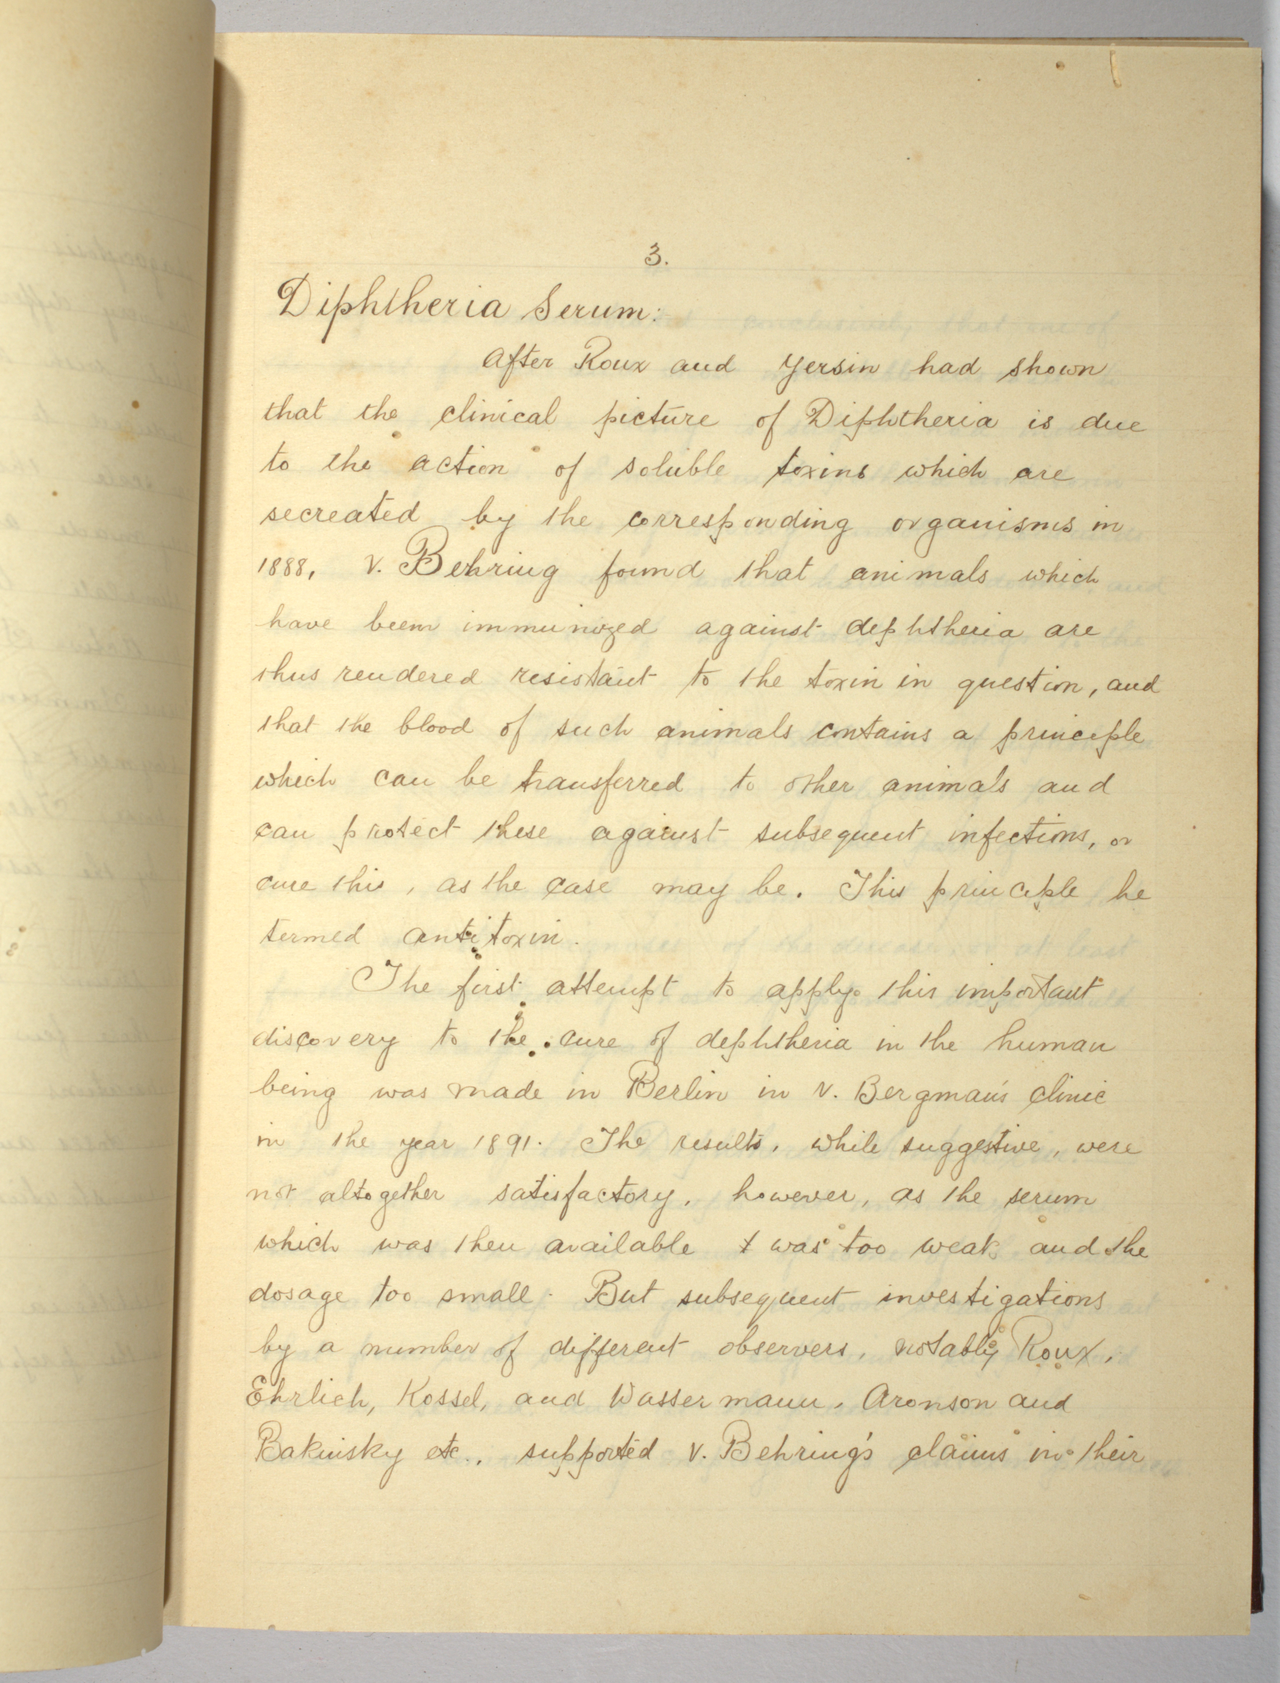 3.
Diphtheria Serum:
After Roux and Yersin had shown
that the clinical picture of Diphtheria is due
to the action of soluble toxins which are
secreated by the corresponding organisms in
1888, v. Behring found that animals which
have been immunized against dephtheria are
thus rendered resistant to the toxin in question, and
that the blood of such animals contains a principle
which can be transferred to other animals and
can protect these against subsequent infections, or
cure this, as the case may be. This principle he
termed antitoxin.
The first attempt to apply this important
discovery to the cure of dephtheria in the human
being was made in Berlin in v. Bergman's clinic
in the year 1891. The results, while suggestive, were
not altogether satisfactory, however, as the serum
which was then available was too weak and the
dosage too small. But subsequent investigations
by a number of different observers, notably Roux,
Ehrlich, Kossel, and Wassermann, Aronson and
Bakinsky etc., supported v. Behring's claims in their